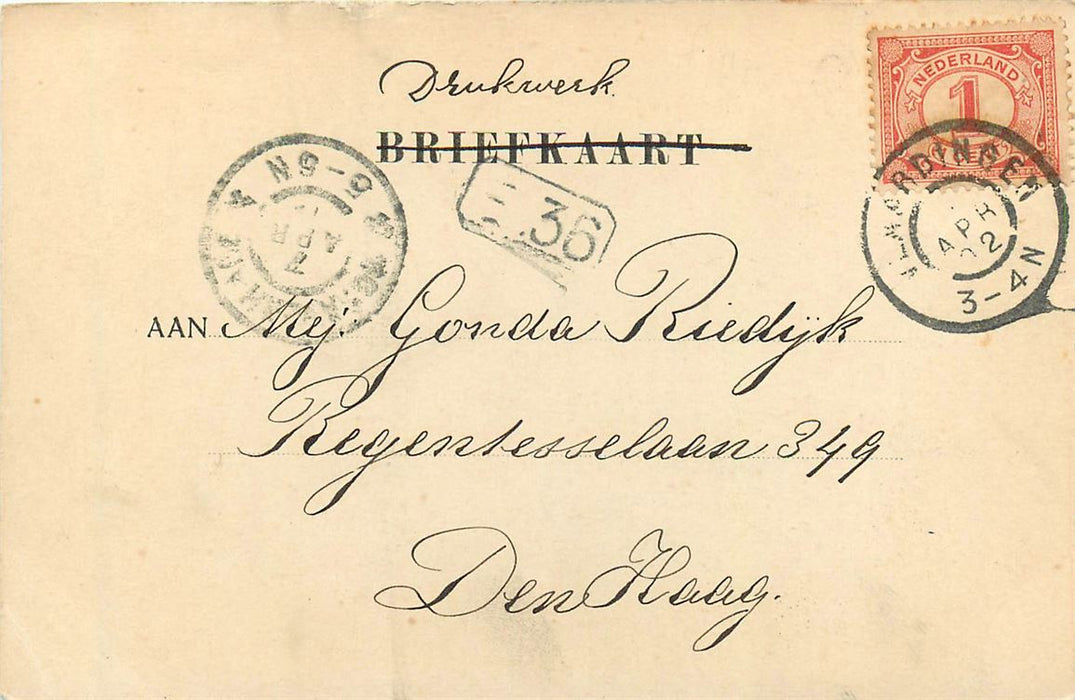 Drukwerk.
BRIEFKAART
NEDERLAND
1
36
VLAARDINGEN
APR
02
3-4N
5-6N
7
APR
AAN Mej. Gonda Riedijk
Regentesselaan 349
Den Haag.